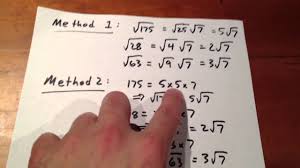 Method 1: √175 = √25 √7 = 5√7
√28 = √4 √7 = 2√7
√63 = √9 √7 = 3√7
Method 2: 175 = 5×5×7
⇒ √17 5√7
8 = 2√7
√63 = 3√7